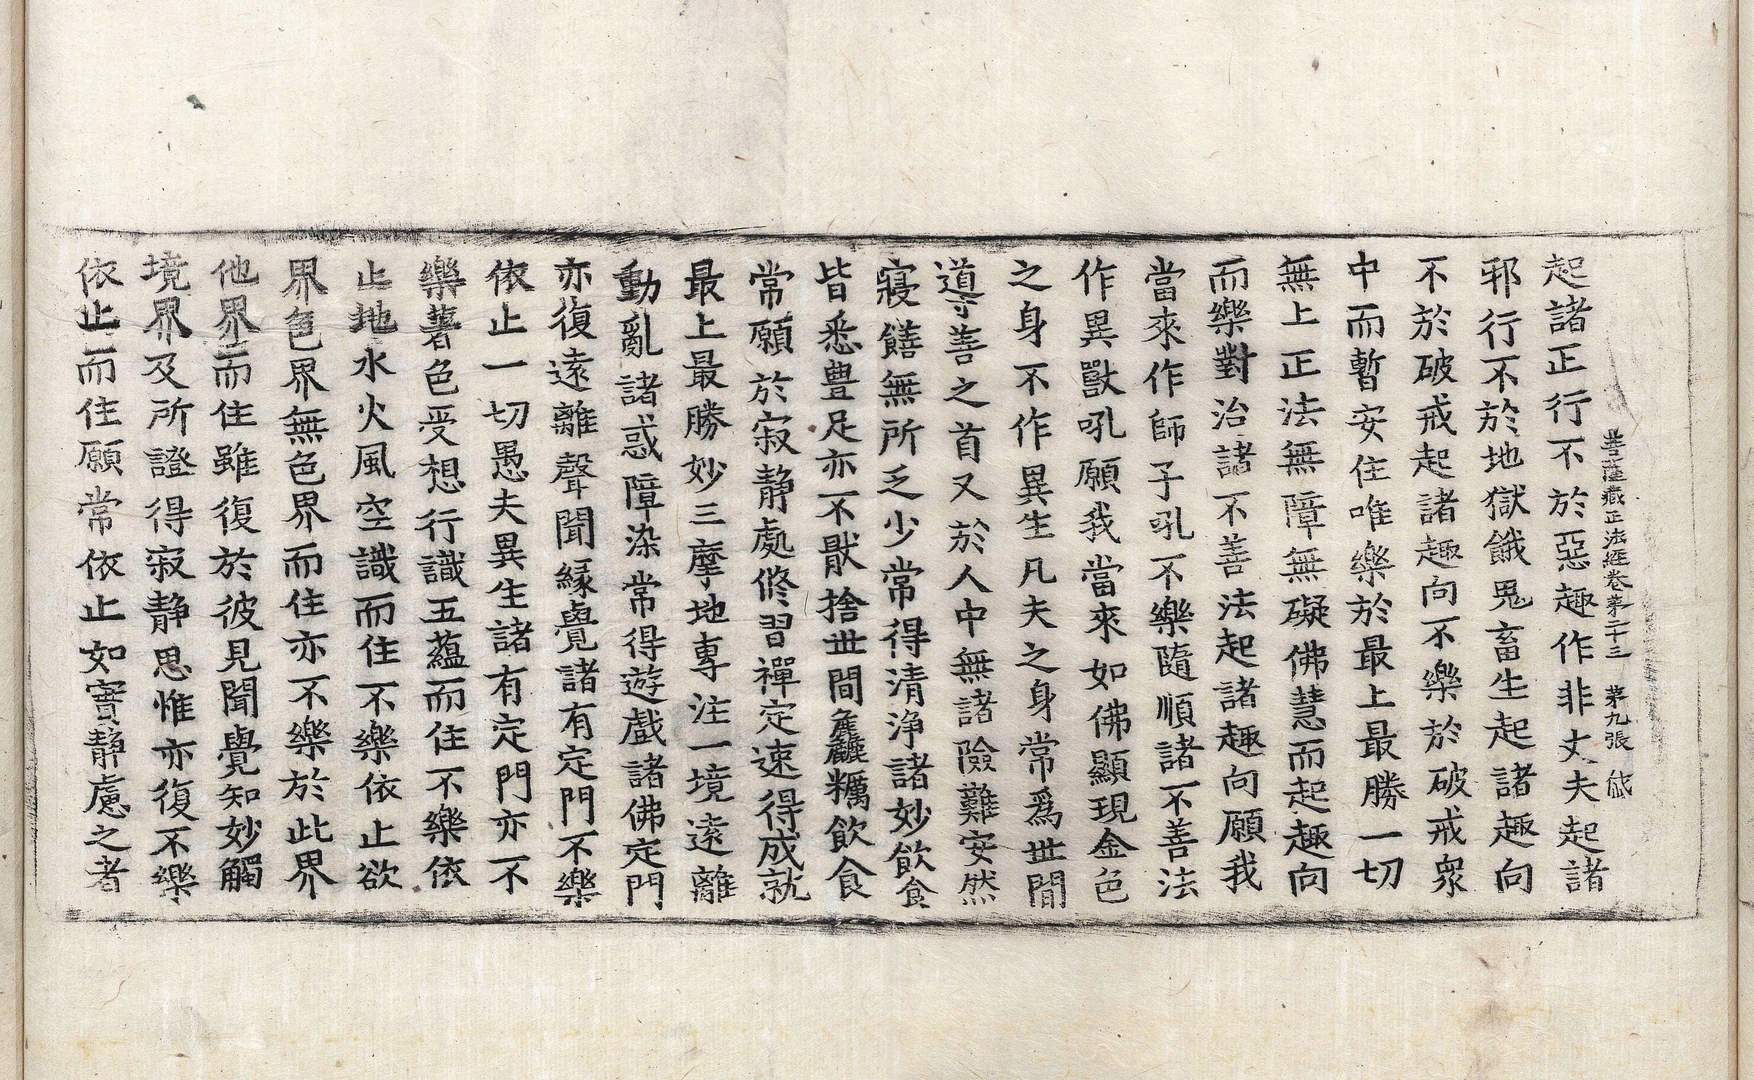 菩薩藏正法經卷第二十三 第九張
起諸正行不於惡趣作非丈夫起諸
邪行不於地獄餓鬼畜生起諸趣向
不於破戒起諸趣向不樂於破戒衆
中而暫安住唯樂於最上最勝一切
無上正法無障無礙佛慧而起趣向
而樂對治諸不善法起諸趣向願我
當來作師子吼不樂隨順諸不善法
作異獸吼願我當來如佛顯現金色
之身不作異生凡夫之身常爲世間
導善之首又於人中無諸險難安然
寢饍無所乏少常得清淨諸妙飲食
皆悉豊足亦不猒捨世間麁糲飲食
常願於寂靜處修習禪定速得成就
最上最勝妙三摩地專注一境遠離
動亂諸惑障染常得遊戲諸佛定門
亦復遠離聲聞緣覺諸有定門不樂
依止一切愚夫異生諸有定門亦不
樂著色受想行識五蘊而住不樂依
止地水火風空識而住不樂依止欲
界色界無色界而住亦不樂於此界
他界而住雖復於彼見聞覺知妙觸
境界及所證得寂靜思惟亦復不樂
依止而住願常依止如實靜慮之者